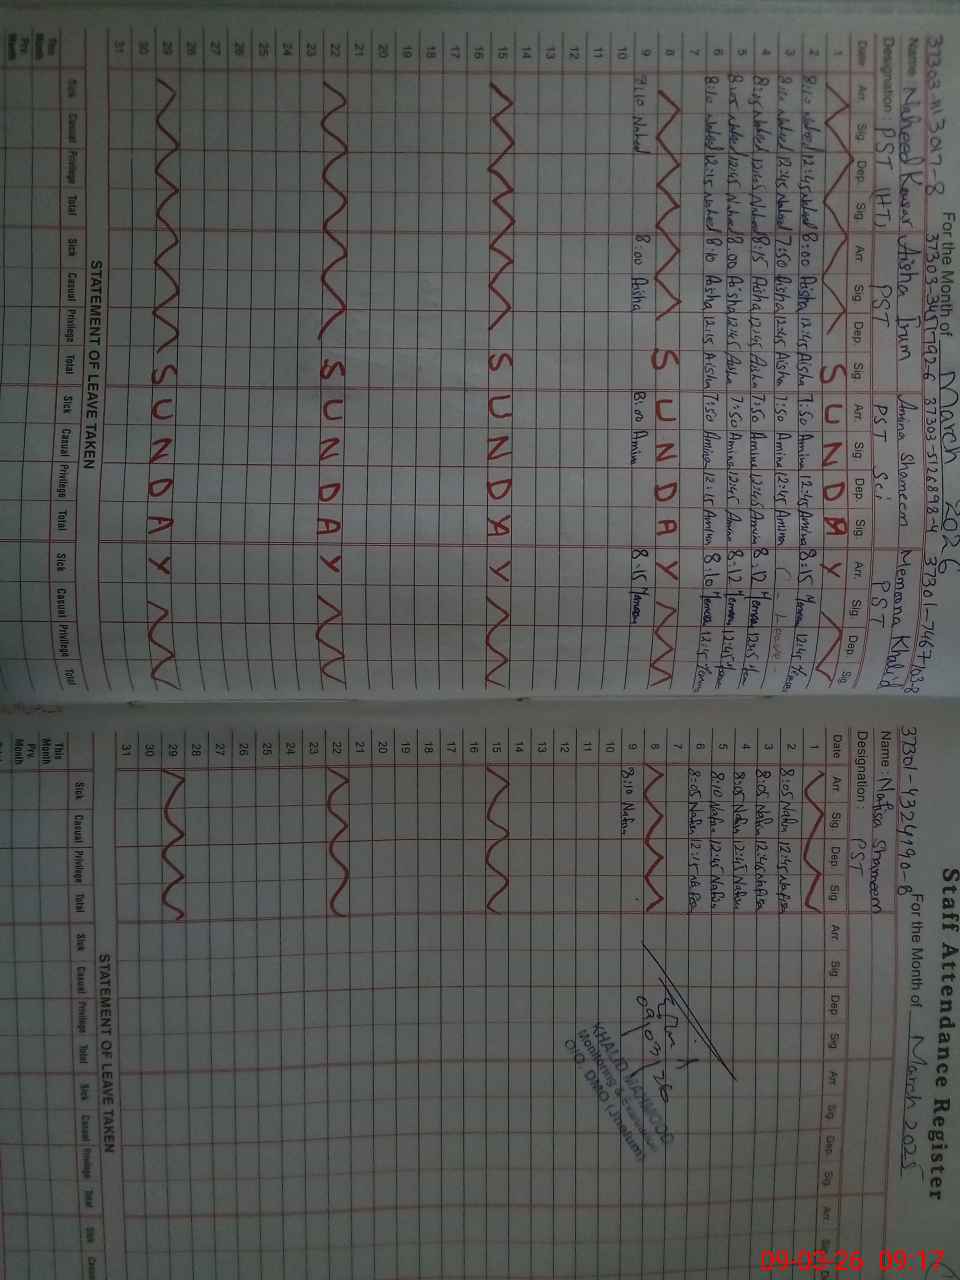 For the Month of March 2026
37303-1113017-8 37303-3451792-6 37303-5126898-4 37301-7467103-8
Name Naheed Kousar Aisha Irum Amina Shameem Memoona Khalid
Designation: PST (HT) PST PST Sci PST
Date Arr. Sig. Dep. Sig. Arr. Sig. Dep. Sig. Arr. Sig. Dep. Sig. Arr. Sig. Dep. Sig.
1 SUNDAY
2 8:10 Naheed 12:45 Naheed 8:00 Aisha 12:45 Aisha 7:50 Amina 12:45 Amina 8:15 12:45
3 8:10 Naheed 12:45 Naheed 7:50 Aisha 12:45 Aisha 7:50 Amina 12:45 Amina C - Leave -
4 8:05 Naheed 12:45 Naheed 8:15 Aisha 12:45 Aisha 7:50 Amina 12:45 Amina 8:12 12:45
5 8:05 Naheed 12:45 Naheed 8:00 Aisha 12:45 Aisha 7:50 Amina 12:45 Amina 8:12 12:45
6 8:10 Naheed 12:15 Naheed 8:10 Aisha 12:15 Aisha 7:50 Amina 12:15 Amina 8:10 12:15
7
8 SUNDAY
9 8:10 Naheed 8:00 Aisha 8:00 Amina 8:15
10
11
12
13
14
15 SUNDAY
16
17
18
19
20
21
22 SUNDAY
23
24
25
26
27
28
29 SUNDAY
30
31
STATEMENT OF LEAVE TAKEN
Sick Casual Privilege Total Sick Casual Privilege Total Sick Casual Privilege Total Sick Casual Privilege Total
This Month
Prv. Month
Staff Attendance Register
For the Month of March 2025
37301-4324190-8
Name: Nafisa Shameem
Designation: PST
Date Arr. Sig. Dep. Sig. Arr. Sig. Dep. Sig. Arr. Sig. Dep. Sig. Arr.
1
2 8:05 Nafisa 12:45 Nafisa
3 8:05 Nafisa 12:45 Nafisa
4 8:05 Nafisa 12:45 Nafisa
5 8:10 Nafisa 12:45 Nafisa
6 8:05 Nafisa 12:15 Nafisa
7
8
9 8:10 Nafisa
10
11
12
13
14
15
16
17
18
19
20
21
22
23
24
25
26
27
28
29
30
31
09/03/26
KHALID MAHMOOD
Monitoring & Evaluation
O/O. DMO (Jhelum)
STATEMENT OF LEAVE TAKEN
Sick Casual Privilege Total Sick Casual Privilege Total Sick Casual Privilege Total Sick
This Month
Prv. Month
09-03-26 09:17